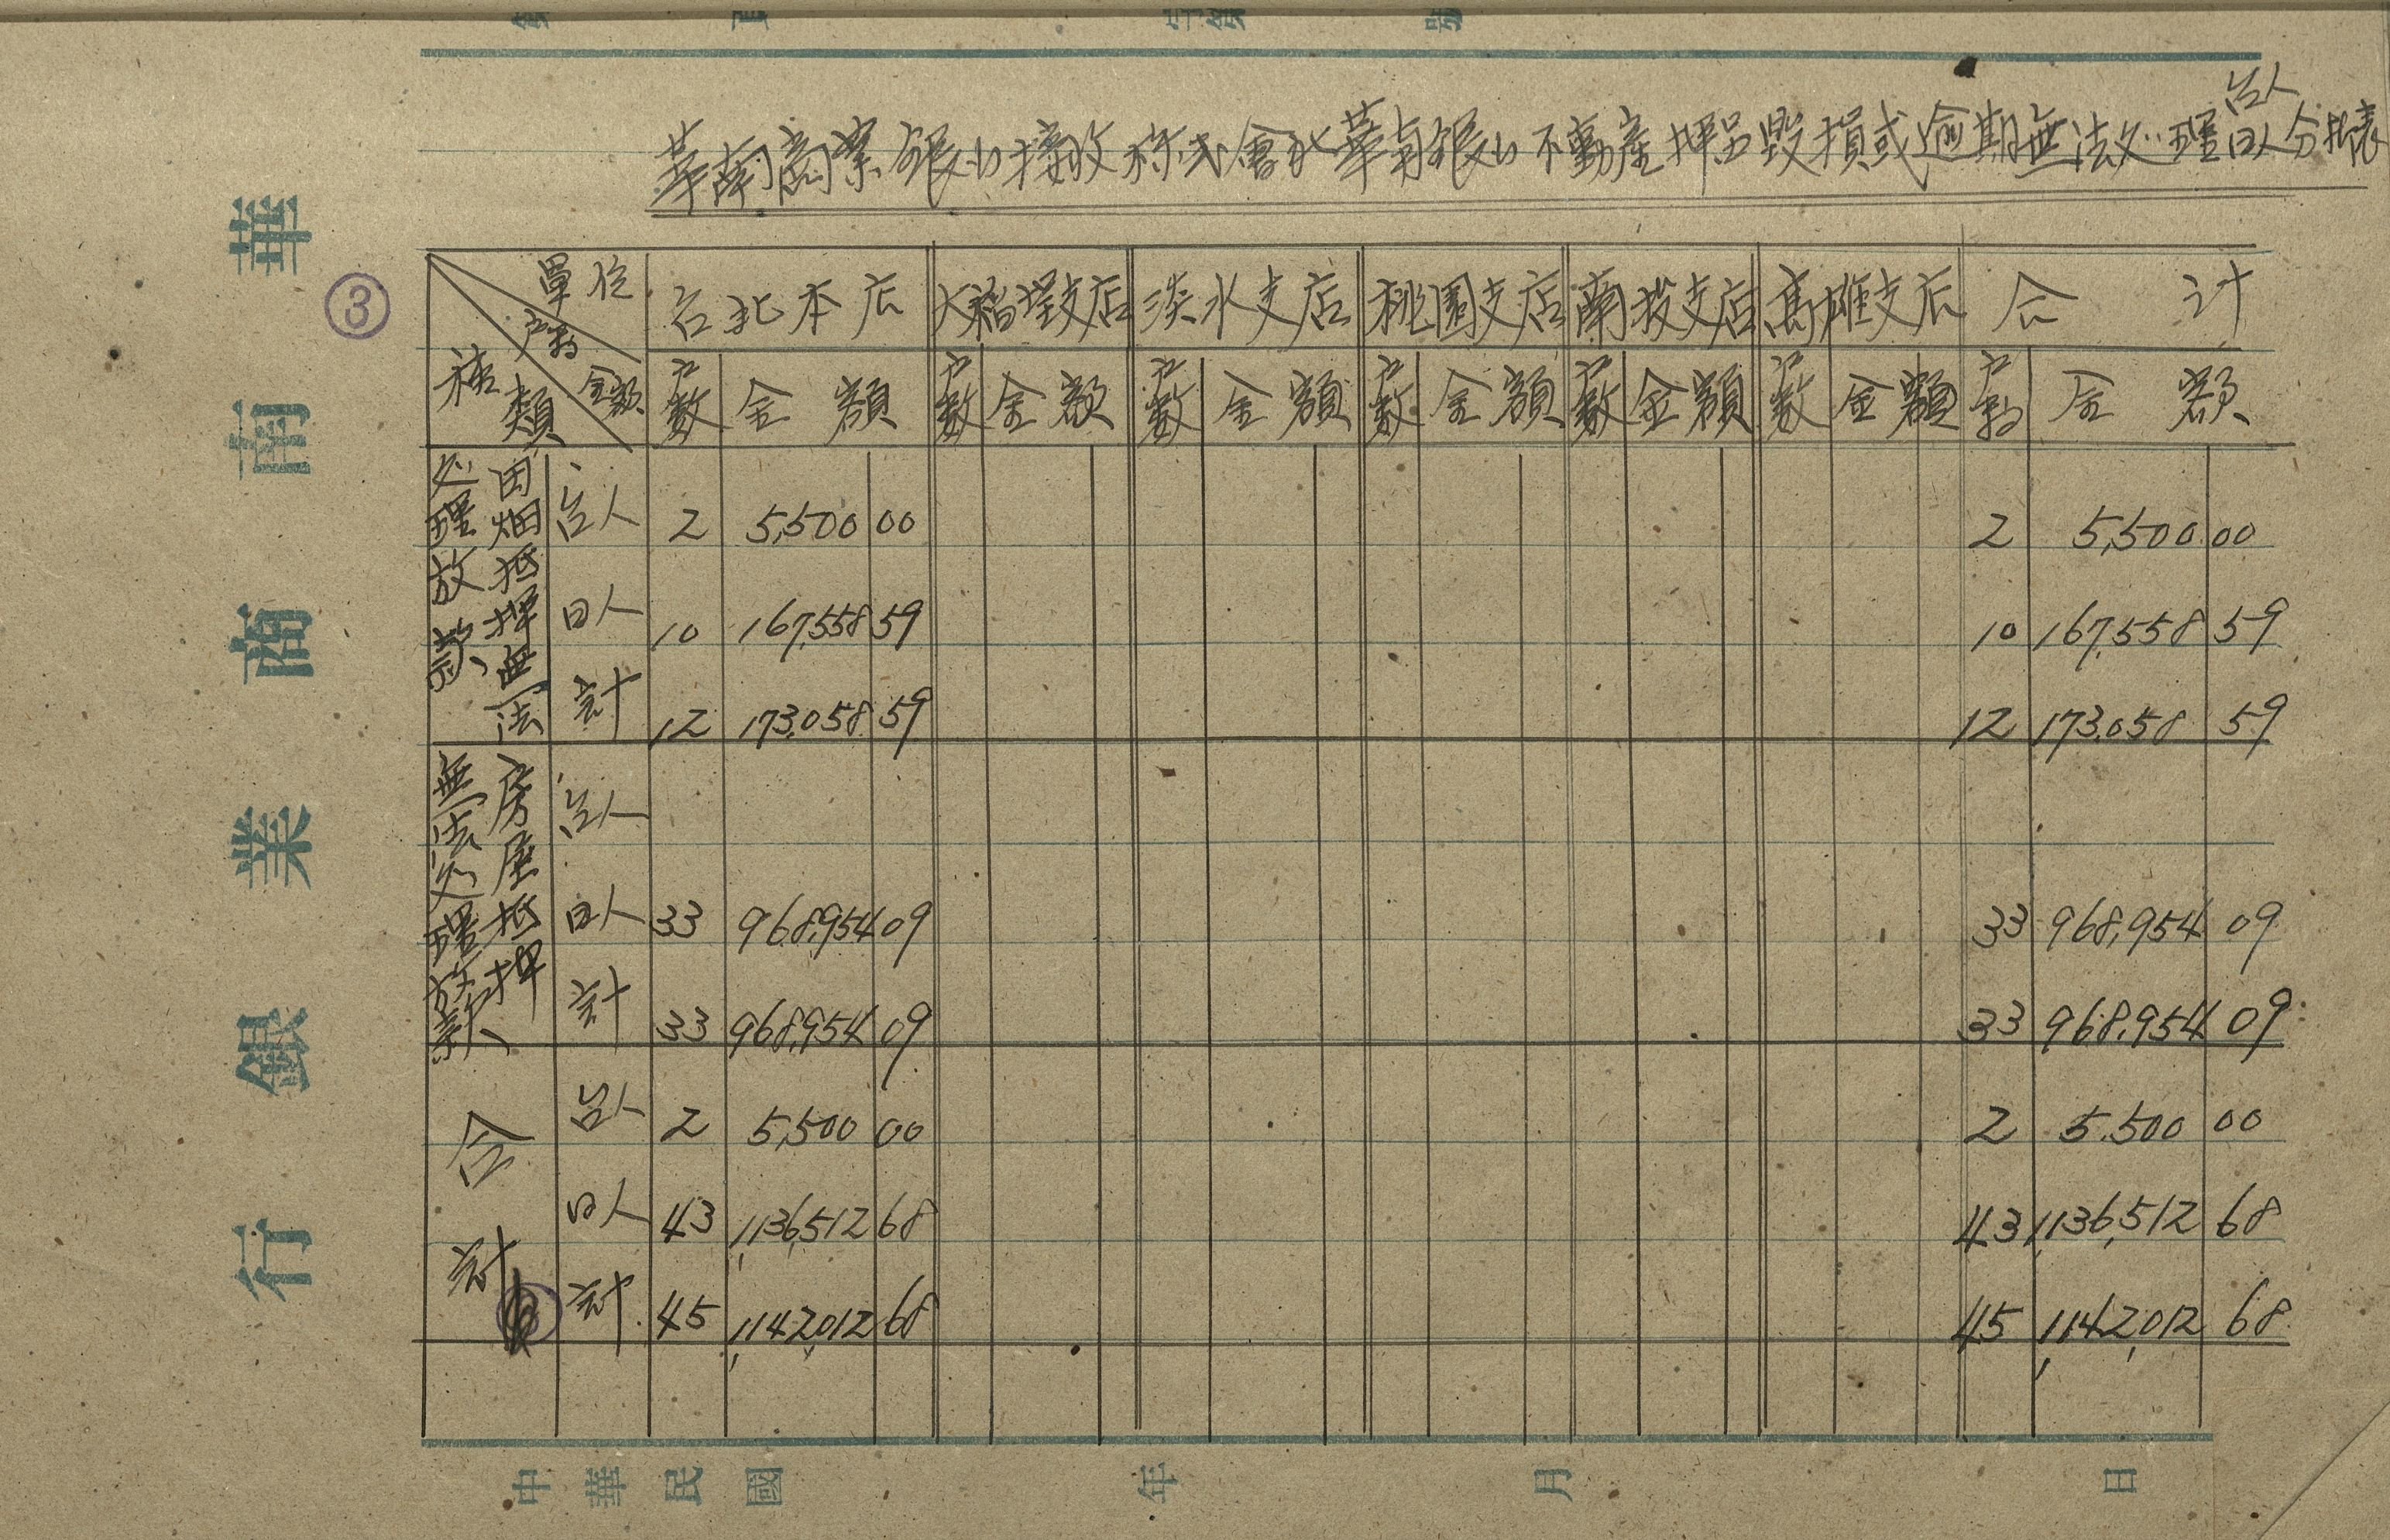 華南商業銀行接收株式會社華南銀行不動產押品毀損或逾期無法処理台人日人分拆表
③
單位 戶數 金額 種類
台北本店 大稻埕支店 淡水支店 桃園支店 南投支店 高雄支店 合計
戶數 金額 戶數 金額 戶數 金額 戶數 金額 戶數 金額 戶數 金額 戶數 金額
田畑抵押無法処理放款
台人 2 5,500 00 2 5,500 00
日人 10 167,558 59 10 167,558 59
計 12 173,058 59 12 173,058 59
房屋抵押無法処理放款
台人
日人 33 968,954 09 33 968,954 09
計 33 968,954 09 33 968,954 09
合計
台人 2 5,500 00 2 5,500 00
日人 43 1,136,512 68 43 1,136,512 68
計 45 1,142,012 68 45 1,142,012 68
華南商業銀行
中華民國 年 月 日